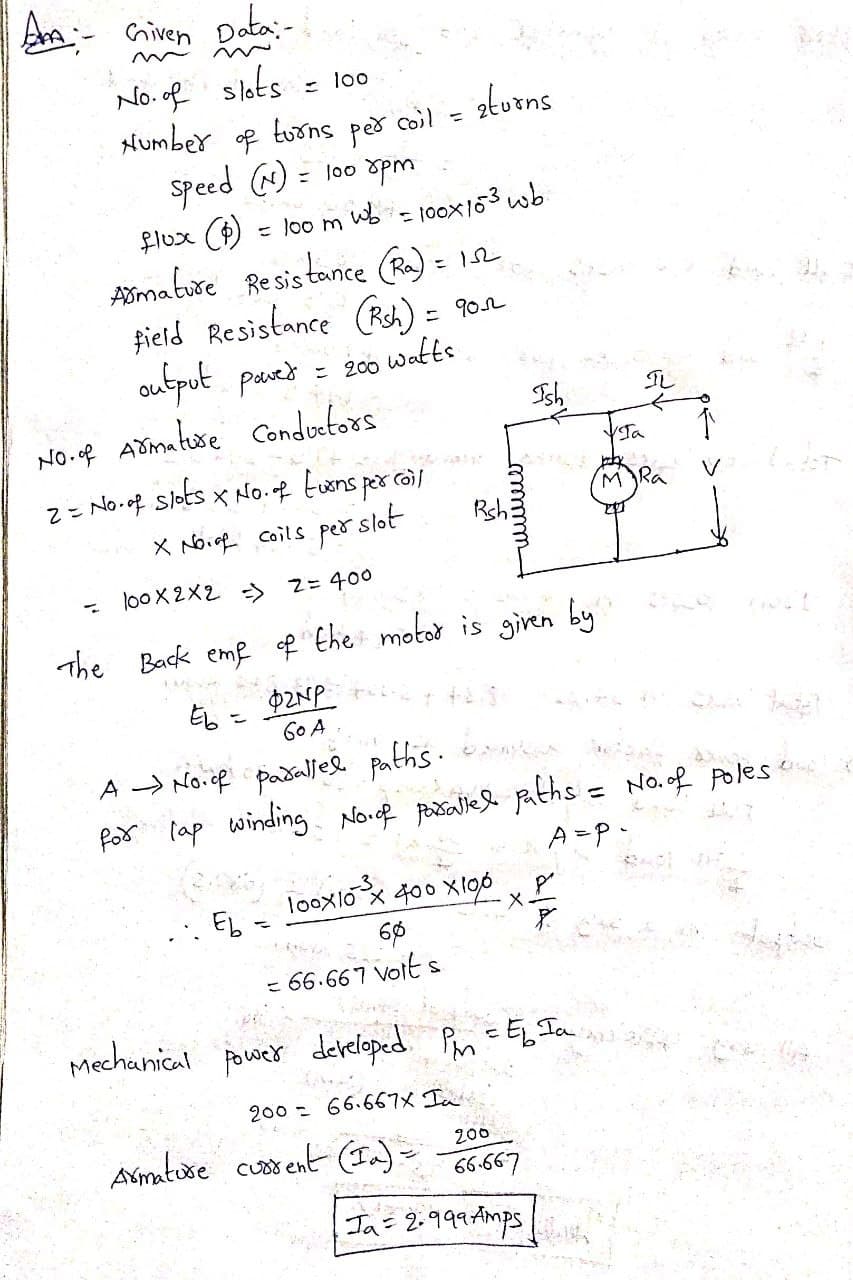 Ans:- Given Data:-
No. of slots = 100
Number of turns per coil = 2turns
speed (N) = 100 rpm
flux (ϕ) = 100 m wb = 100×10⁻³ wb
Armature Resistance (Ra) = 1Ω
field Resistance (Rsh) = 90Ω
output power = 200 watts
No. of Armature Conductors
Z = No. of slots x No. of turns per coil
x No. of coils per slot
= 100 x 2 x 2 ⇒ Z = 400
Ish
IL
Ia
M
Ra
V
Rsh
The Back emf of the motor is given by
Eb = ϕZNP / 60 A
A → No. of parallel paths.
for lap winding No. of parallel paths = No. of poles
A = P.
∴ Eb = 100×10⁻³ x 400 x 100 / 60 x P / P
= 66.667 volts
Mechanical power developed Pm = Eb Ia
200 = 66.667 x Ia
Armature current (Ia) = 200 / 66.667
Ia = 2.999 Amps